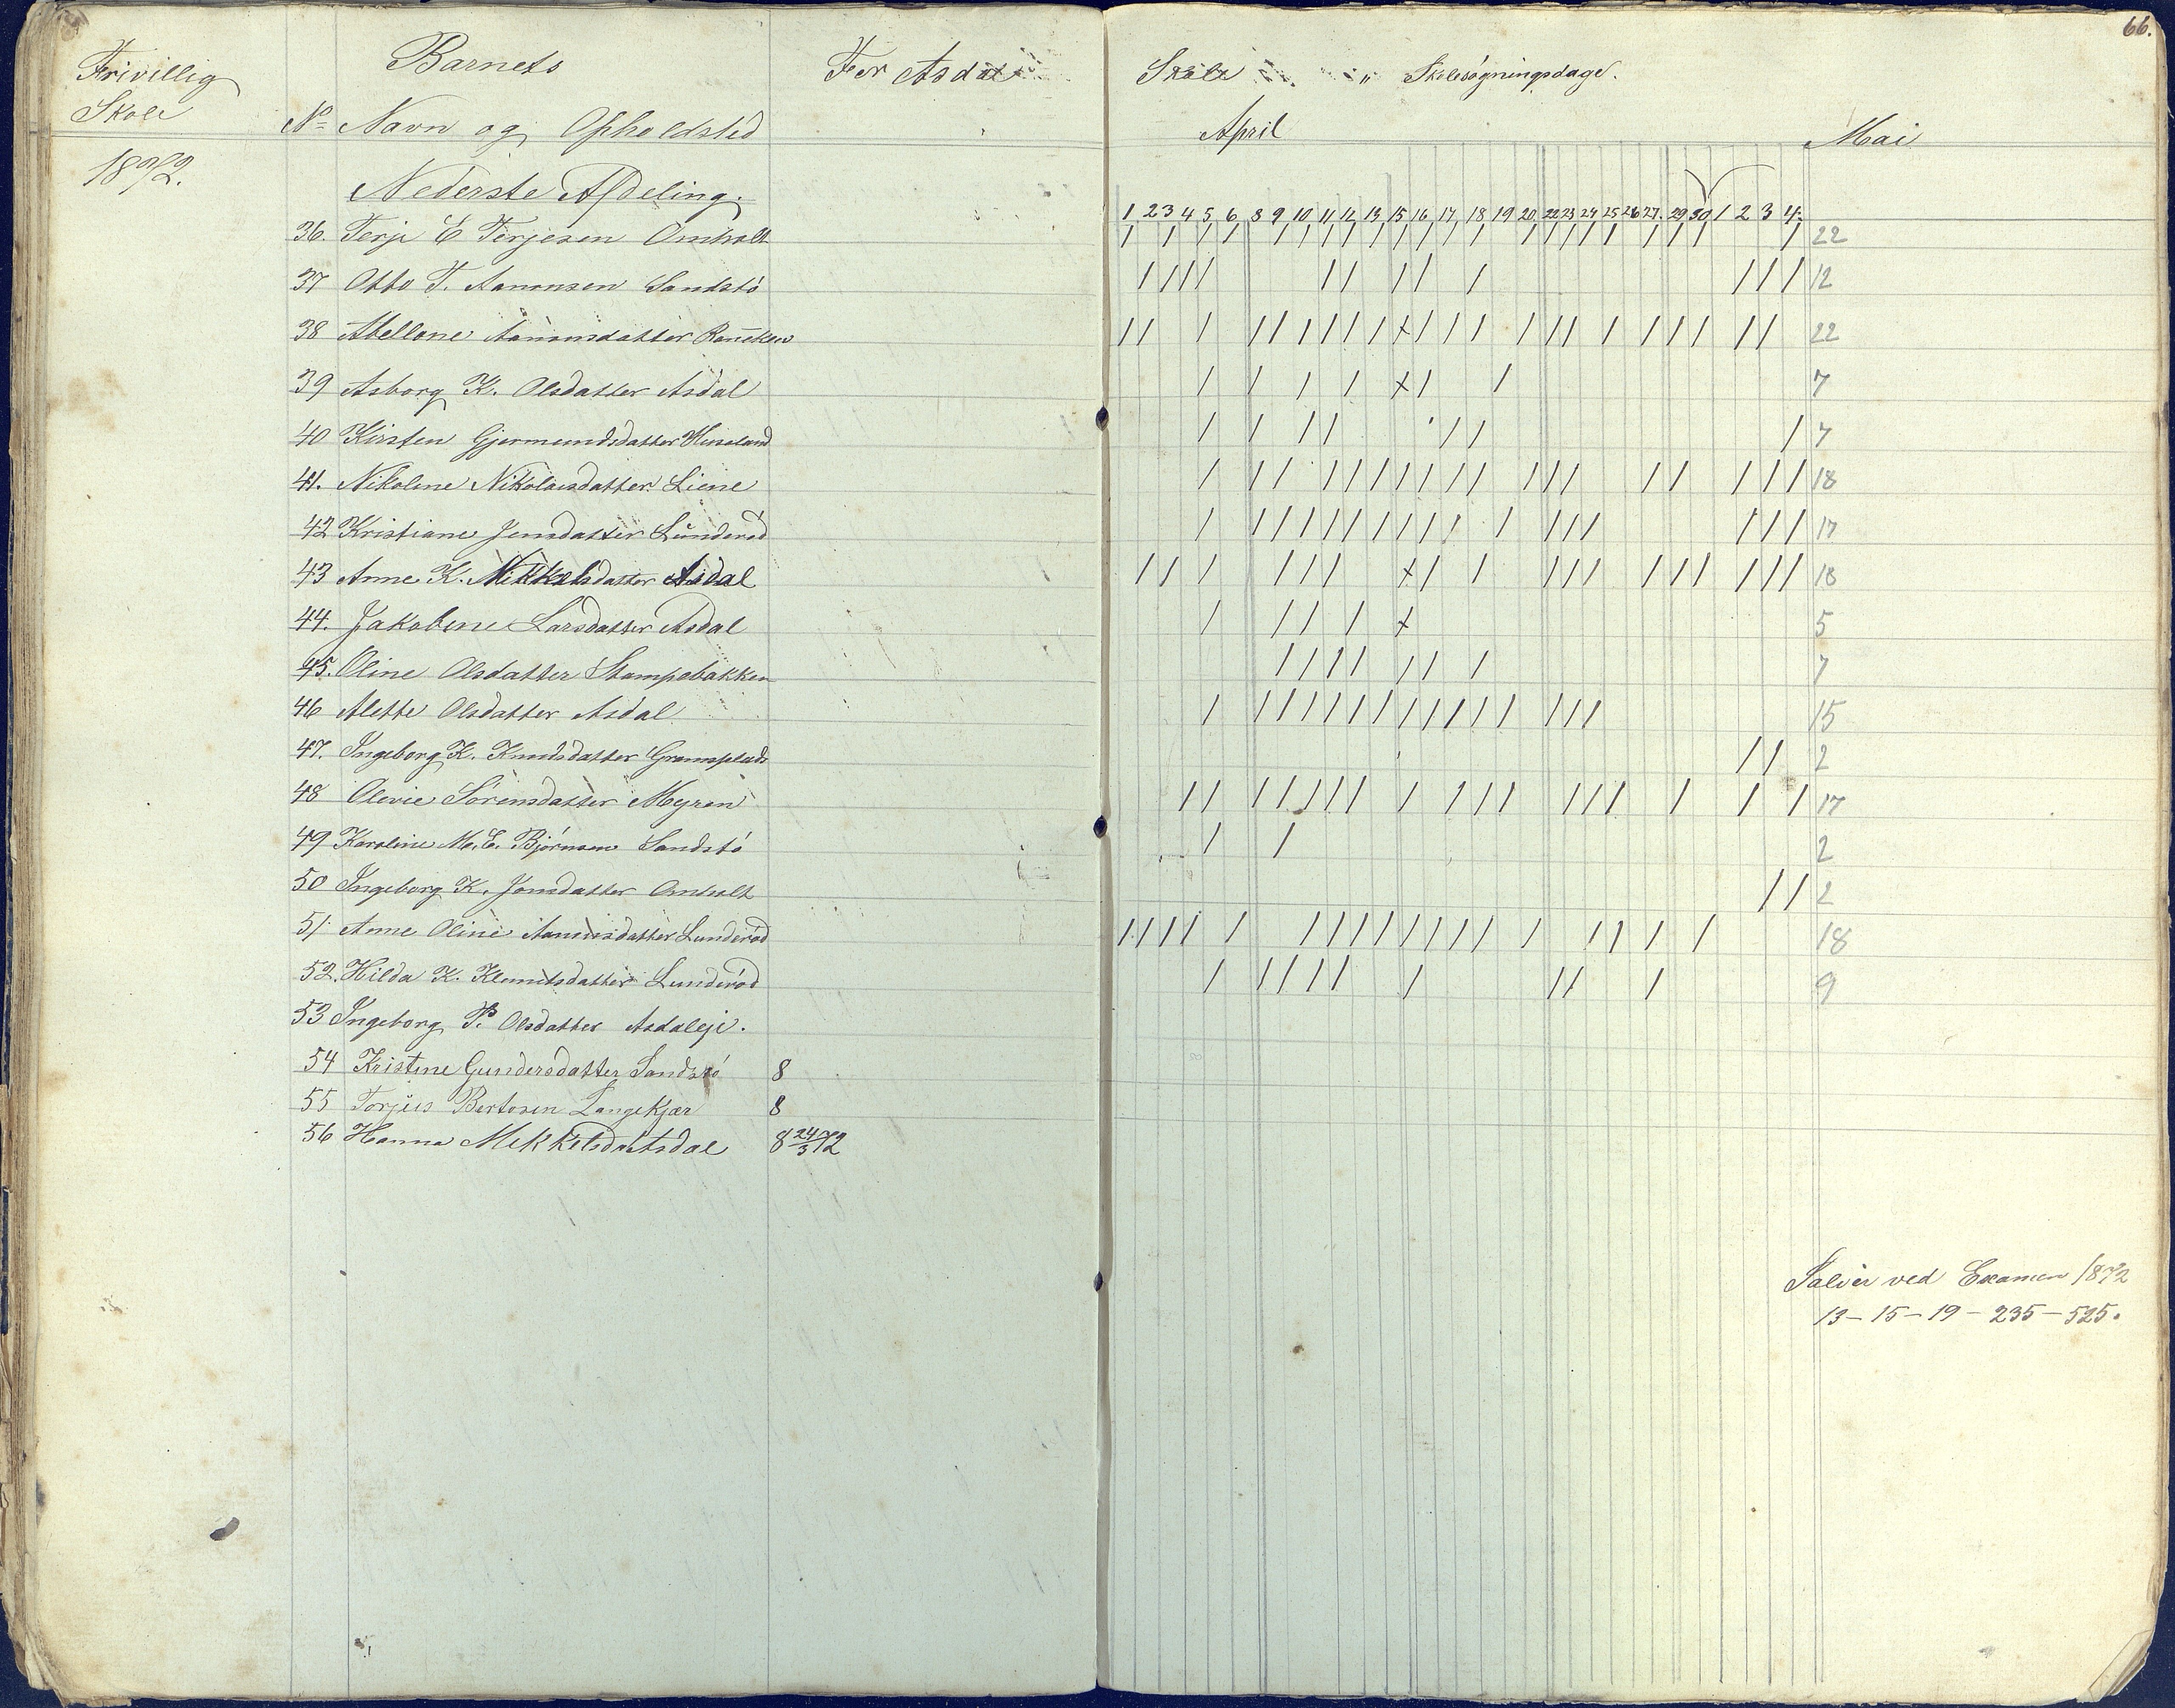 66.
Frivillig
Skole
1872.
Barnets
No Navn og Opholdsted
For Asdal
Skole " Skolesøgningsdage.
April
Mai
Nederste Afdeling.
1 2 3 4 5 6 8 9 10 11 12 13 15 16 17 18 19 20 22 23 24 25 26 27. 29 30 1 2 3 4.
36. Terje E Terjesen Omholt / / / / / / / / / / / / / / / / / / / / / / 22
37 Otto T. Aanonsen Sandstø / / / / / / / / / / / / 12
38 Abellone Aanonsdatter / / / / / / / / / x / / / / / / / / / / / / 22
39 Asborg K. Olsdatter Asdal / / / / x / / 7
40 Kirsten Gjermundsdatter / / / / / / / 7
41. Nikoline Nikolaisdatter Liene / / / / / / / / / / / / / / / / / / 18
42 Kristiane Jensdatter Lunderød / / / / / / / / / / / / / / / / / 17
43 Anne K. Mikkelsdatter Asdal / / / / / / x / / / / / / / / / / / 18
44. Jakobine Larsdatter Asdal / / / / x 5
45. Oline Olsdatter Stampebakken / / / / / / / 7
46 Alette Olsdatter Asdal / / / / / / / / / / / / / / / 15
47. Ingeborg K. Knudsdatter / / 2
48 Olevie Sørensdatter Myren / / / / / / / / / / / / / / / / / 17
49 Karoline M. E. Bjørnsen Sandstø / / 2
50 Ingeborg K. Jonsdatter Omholt / / 2
51 Anne Oline Aanonsdatter Lunderød / / / / / / / / / / / / / / / / / / 18
52. Hilda K. Klemetsdatter Lunderød / / / / / / / / / 9
53 Ingeborg P. Olsdatter Asdaleje.
54 Kristine Gundersdatter Sandstø 8
55 Torjus Bertosen Langekjær 8
56 Hanna Mikkelsdat Asdal 8 24/3 72
ved Examen 1872
13 – 15 – 19 – 235 – 525.